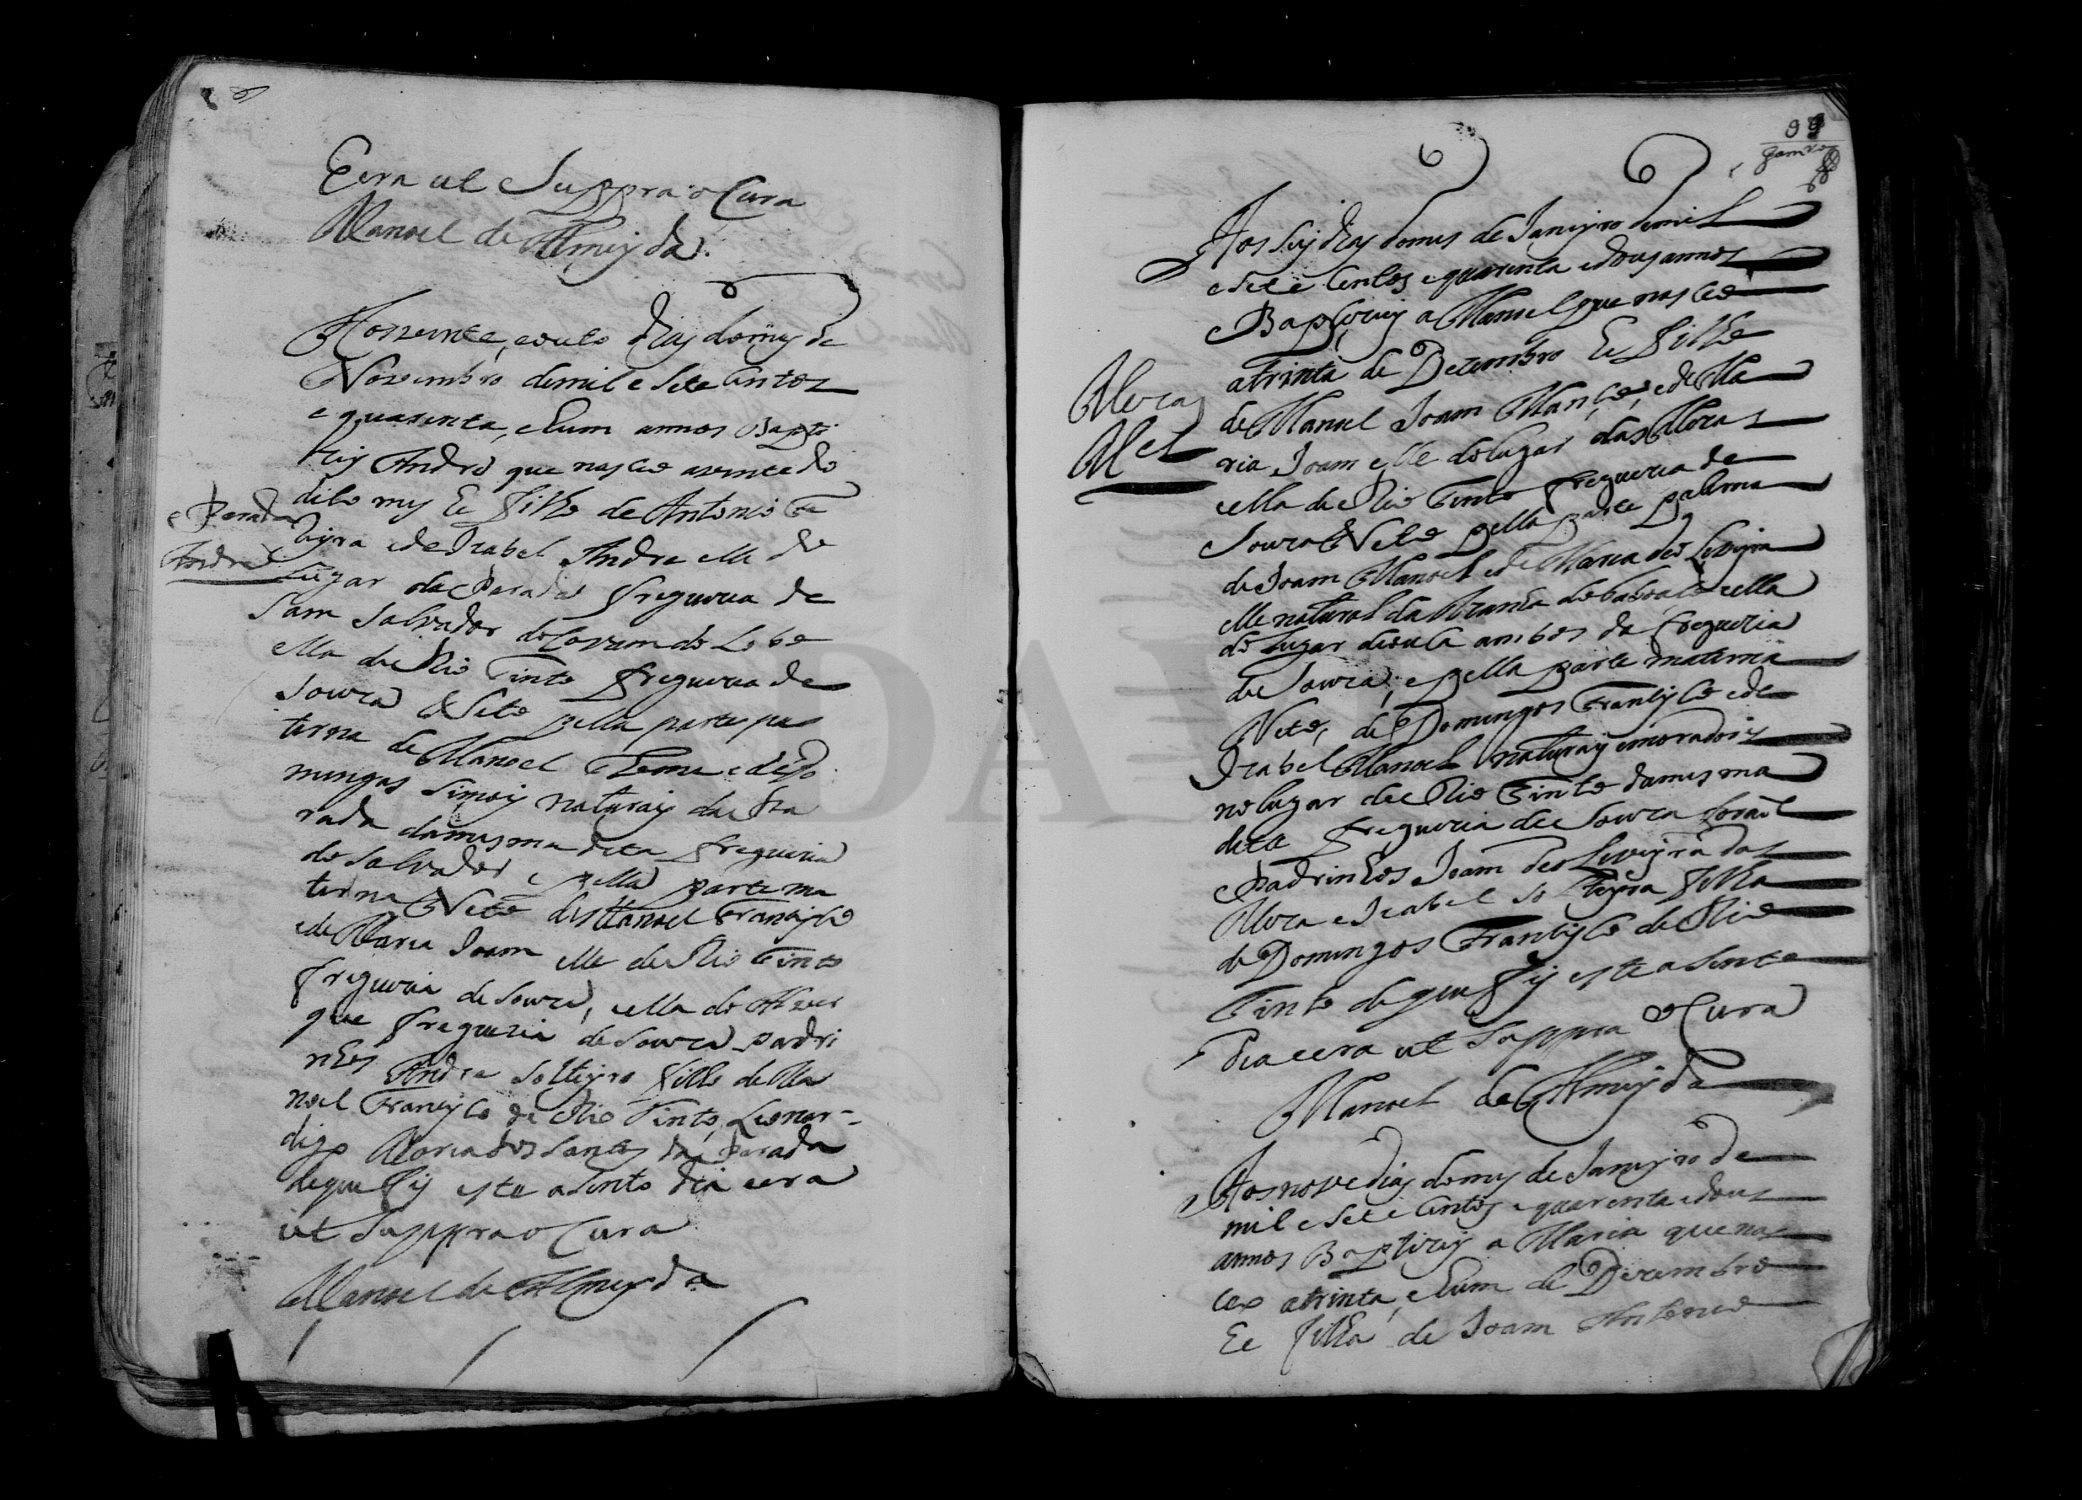 Eera ut Suppra o Cura
Manoel de Almeyda
Aos vinte, e outo dias do mes de
Novembro de mil e sete Centos
e quarenta, e hum annos Bapti
zey Andre que nasceo a vinte do
dito mes he filho de Antonio
Parada
Andre
e de Izabel Andre elle do
Lugar da Parada freguezia de
Sam Salvador do Covam do Lobo
ella de Rio Tinto freguezia de
Souza Neto pella parte pa
terna de Manoel e de Do
mingas Simois naturais da Pa
rada da mesma dita freguezia
do Salvador e pella parte ma
terna Neto de Manoel Francisco
e de Maria Joam elle de Rio Tinto
freguezia de Souza, e ella do
que freguezia de Souza Padri
nhos Andre Solteyro filho de Ma
noel Francisco de Rio Tinto, Leonor
digo Maria dos Santos da Parada
de que fis este asento dia e era
ut Suppra o Cura
Manoel de Almeyda
99
Aos seis dias do mes de Janeyro de mil
e sete Centos e quarenta e dous annos
Baptizey a Manoel que nasceo
a trinta de Dezembro he filho
Moras
Mel
de Manoel Joam Manco, e de Ma
ria Joam elle do lugar das Moras
e ella de Rio Tinto freguezia de
Souza Neto pella parte paterna
de Joam Manoel e de Maria de Oliveyra
elle natural da e ella
do lugar de ambos da freguezia
de Souza, e pella parte materna
Neto, de Domingos Francisco e de
Izabel Manoel naturais e moradores
no lugar de Rio Tinto da mesma
dita freguezia de Souza foram
Padrinhos Joam de Oliveyra das
Moras e Izabel Solteyra filha
de Domingos Francisco de Rio
Tinto de que fis este asento
dia e era ut Suppra o Cura
Manoel de Almeyda
Aos nove dias do mes de Janeyro de
mil e sete Centos e quarenta e dous
annos Baptizey a Maria que nas
ceo a trinta, e hum de Dezembro
he filha de Joam Antonio